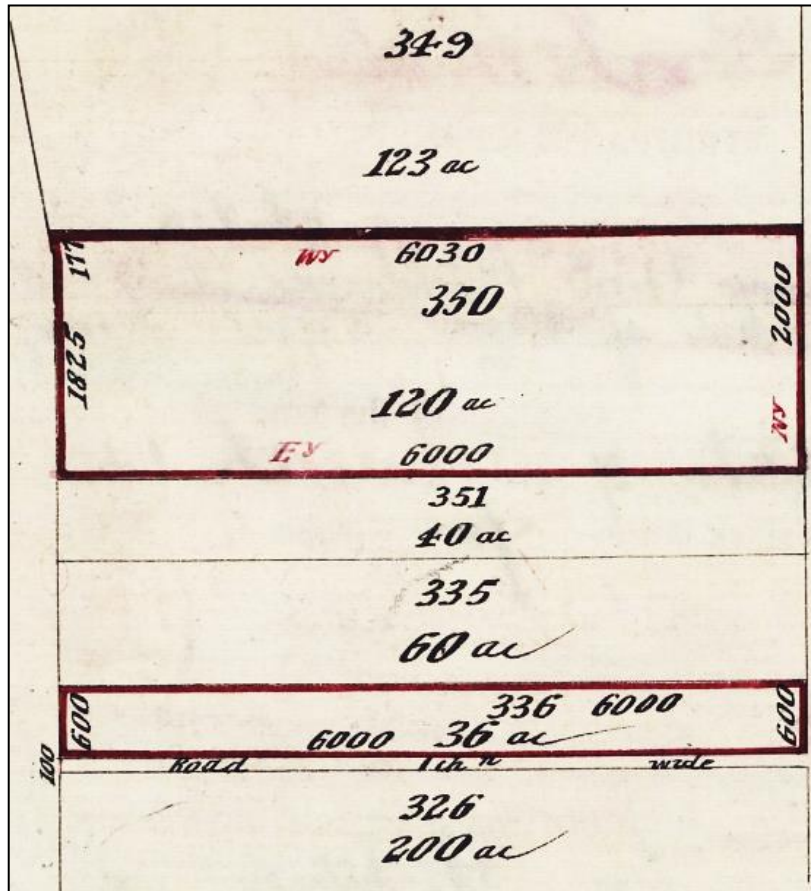 349
123 ac
177
Wy 6030
350
2000
1825
120 ac
Ny
Ey 6000
351
40 ac
335
60 ac
600
336 6000
600
6000 36 ac
100
Road 1 ch n wide
326
200 ac